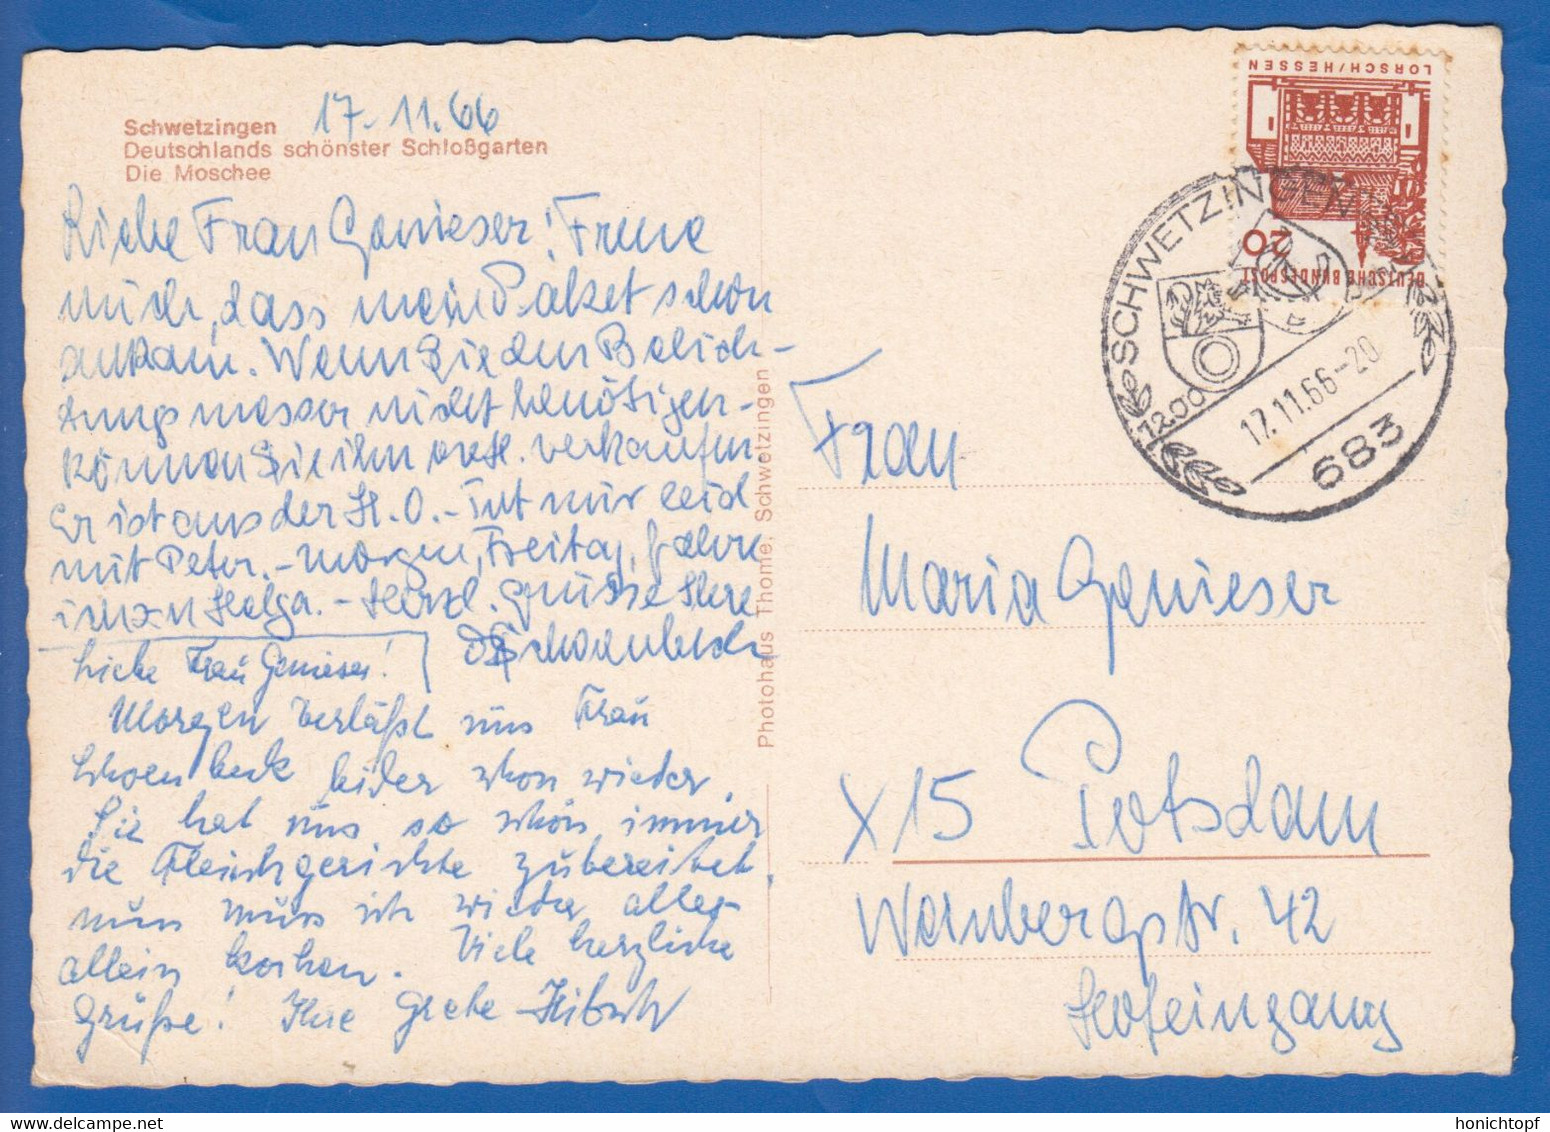 17.11.66
Schwetzingen
Deutschlands schönster Schloßgarten
Die Moschee
Liebe Frau Genieser! Freue
mich, dass mein Paket schon
ankam. Wenn Sie den Belich-
tungsmesser nicht benötigen -
können Sie ihn evtl. verkaufen.
Er ist aus der H.O. - Tut mir leid
mit Peter. - Morgen, Freitag, fahre
ich zu Helga. - Herzl. Grüsse Ihre
Schoenbeck
Liebe Frau Genieser!
Morgen verläßt uns Frau
Schoenbeck leider schon wieder.
Sie hat uns so schön immer
die Fleischgerichte zubereitet,
nun muss ich wieder alles
allein kochen. Viele herzliche
Grüße! Ihre Grete
Photohaus Thome, Schwetzingen
LORSCH/HESSEN
20
DEUTSCHE BUNDESPOST
SCHWETZINGEN
1200
17.11.66-20
683
Frau
Maria Genieser
X15 Potsdam
Weinbergstr. 42
Hofeingang
honichtopf